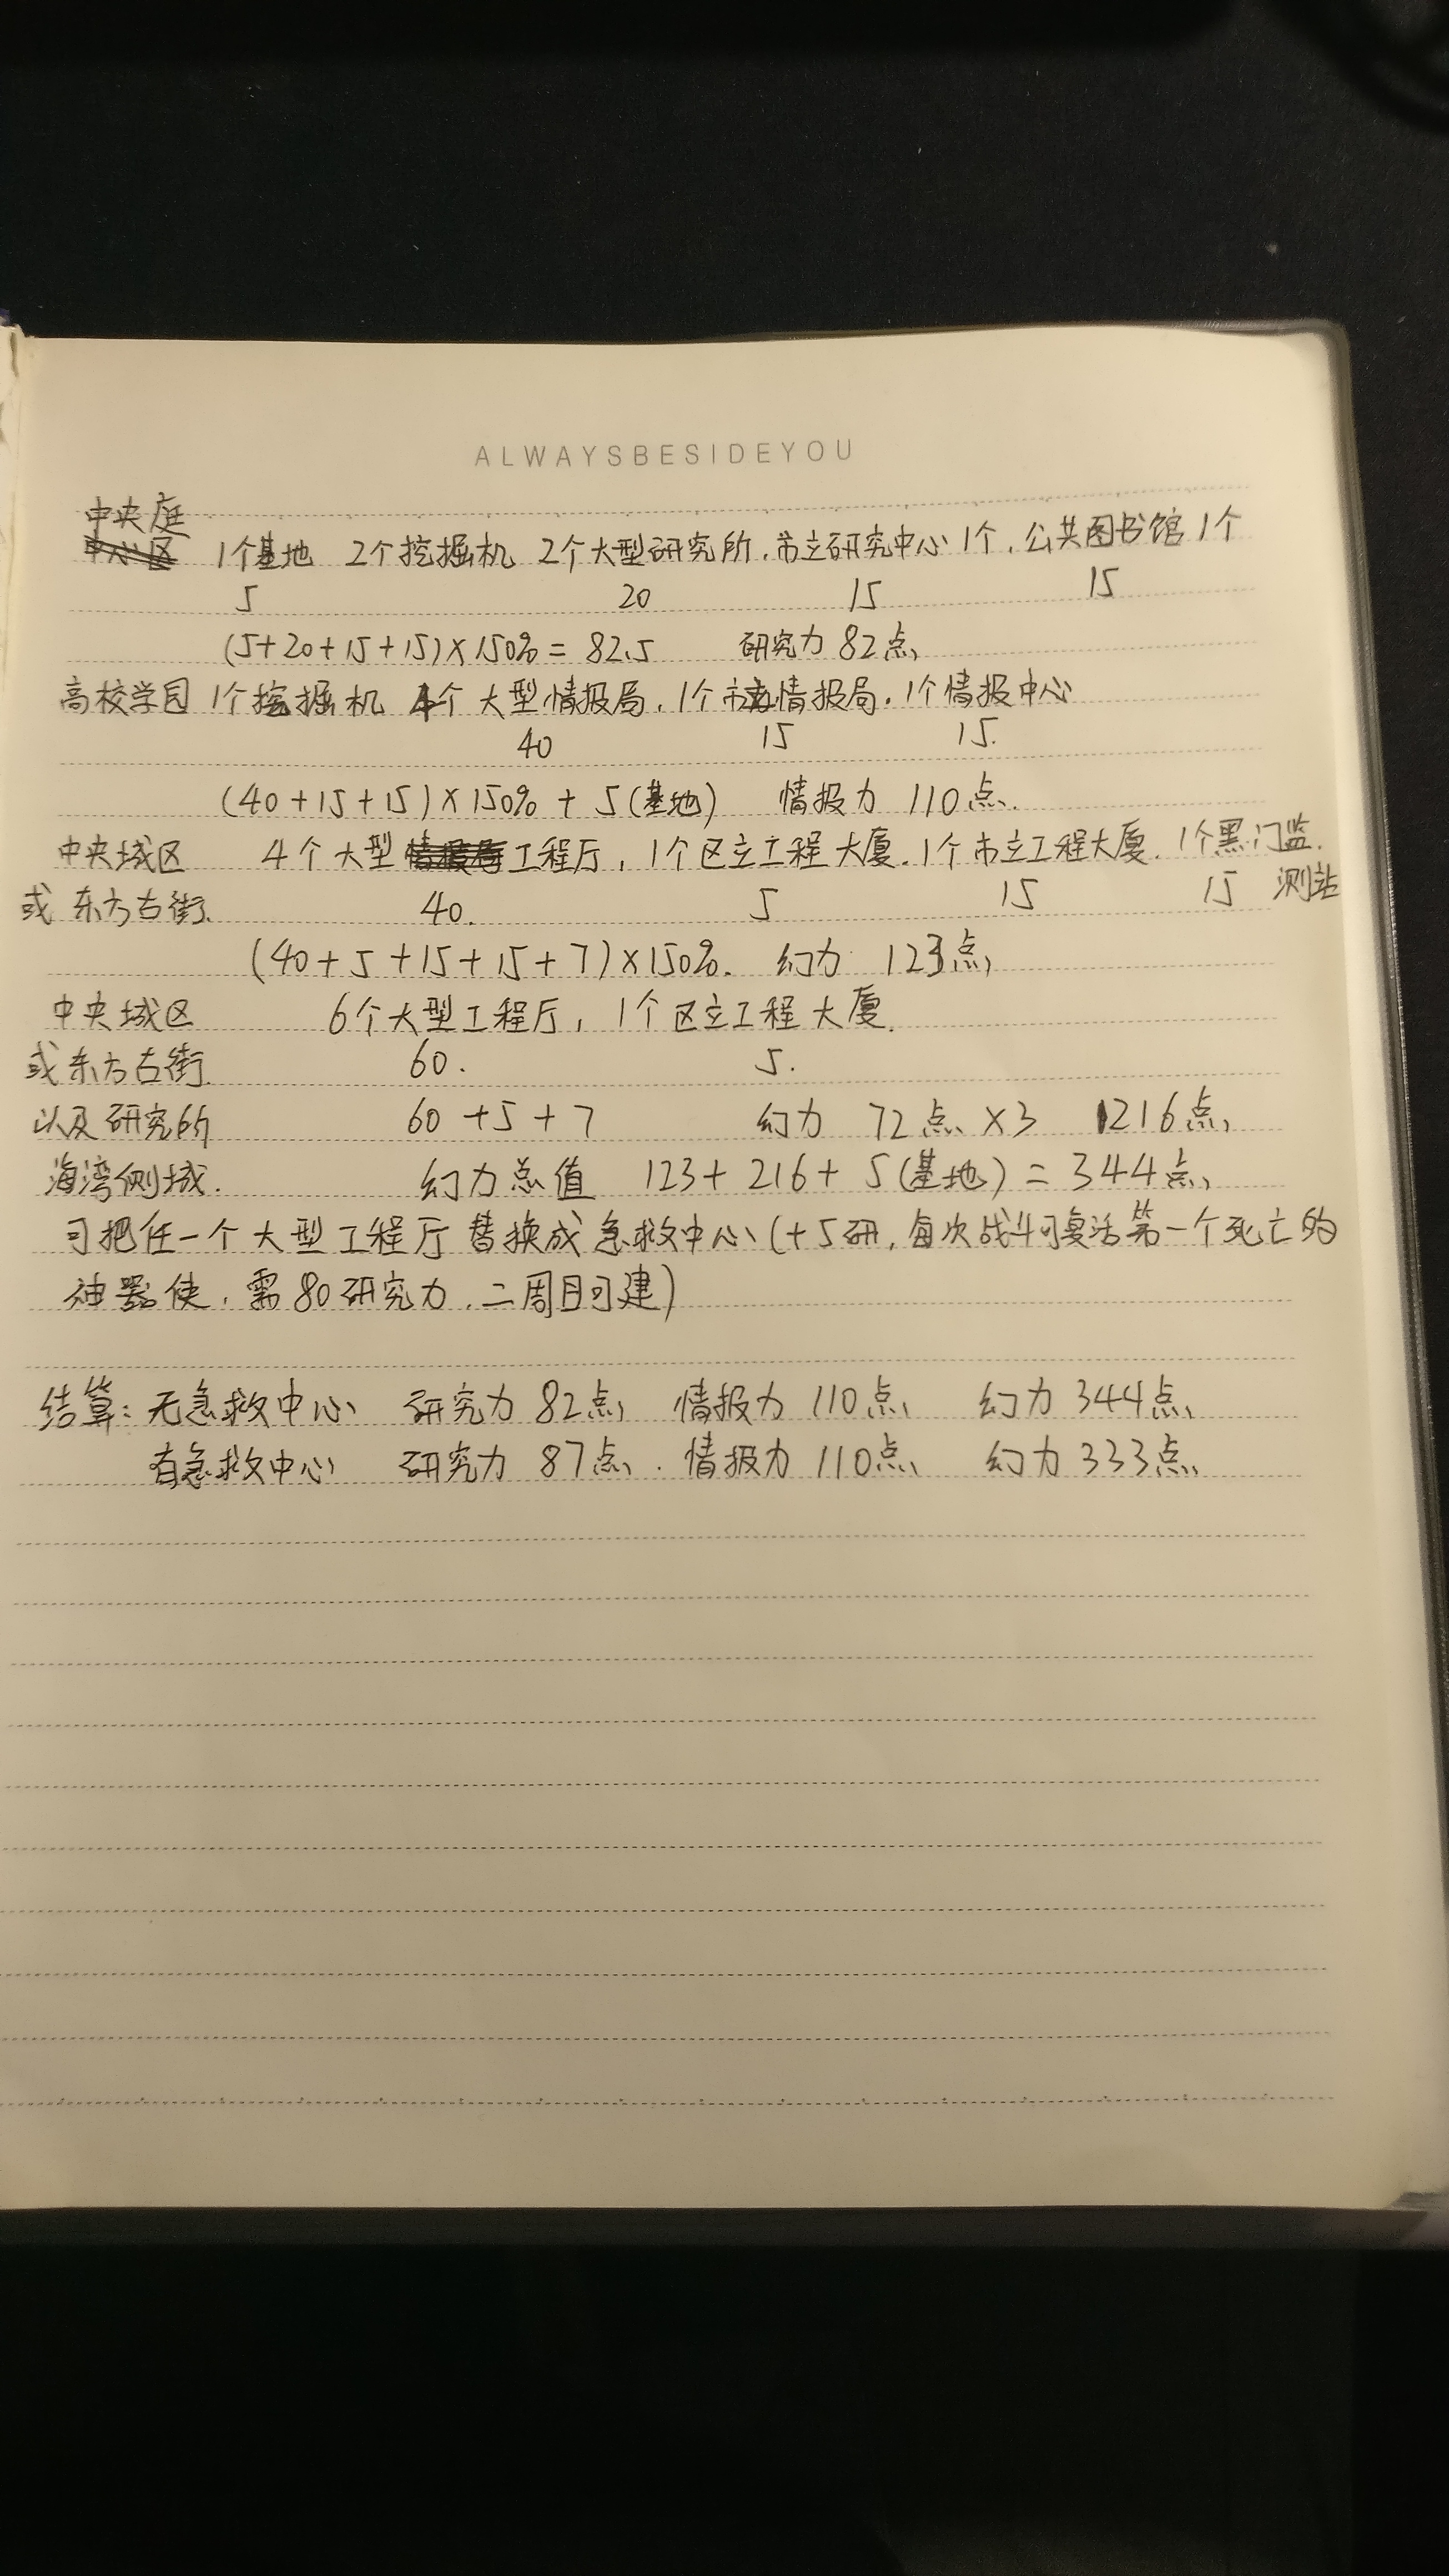 ALWAYSBESIDEYOU
中央庭
1个基地 2个挖掘机 2个大型研究所.市立研究中心1个,公共图书馆1个
5 20 15 15
(5+20+15+15)×150%=82.5 研究力82点
高校学园 1个挖掘机 4个大型情报局,1个市立情报局,1个情报中心
40 15 15.
(40+15+15)×150%+5(基地) 情报力 110点.
中央城区 4个大型工程厅,1个区立工程大厦.1个市立工程大厦.1个黑门监.
或东方古街. 40. 5 15 15 测站
(40+5+15+15+7)×150%. 幻力 123点
中央城区 6个大型工程厅,1个区立工程大厦.
或东方古街. 60. 5.
以及研究所 60+5+7 幻力 72点×3 216点
海湾侧城. 幻力总值 123+216+5(基地)=344点
可把任一个大型工程厅替换成急救中心(+5研,每次战斗可复活第一个死亡的
神器使,需80研究力,二周目可建)
结算:无急救中心 研究力82点 情报力110点 幻力344点
有急救中心 研究力 87点. 情报力110点 幻力333点